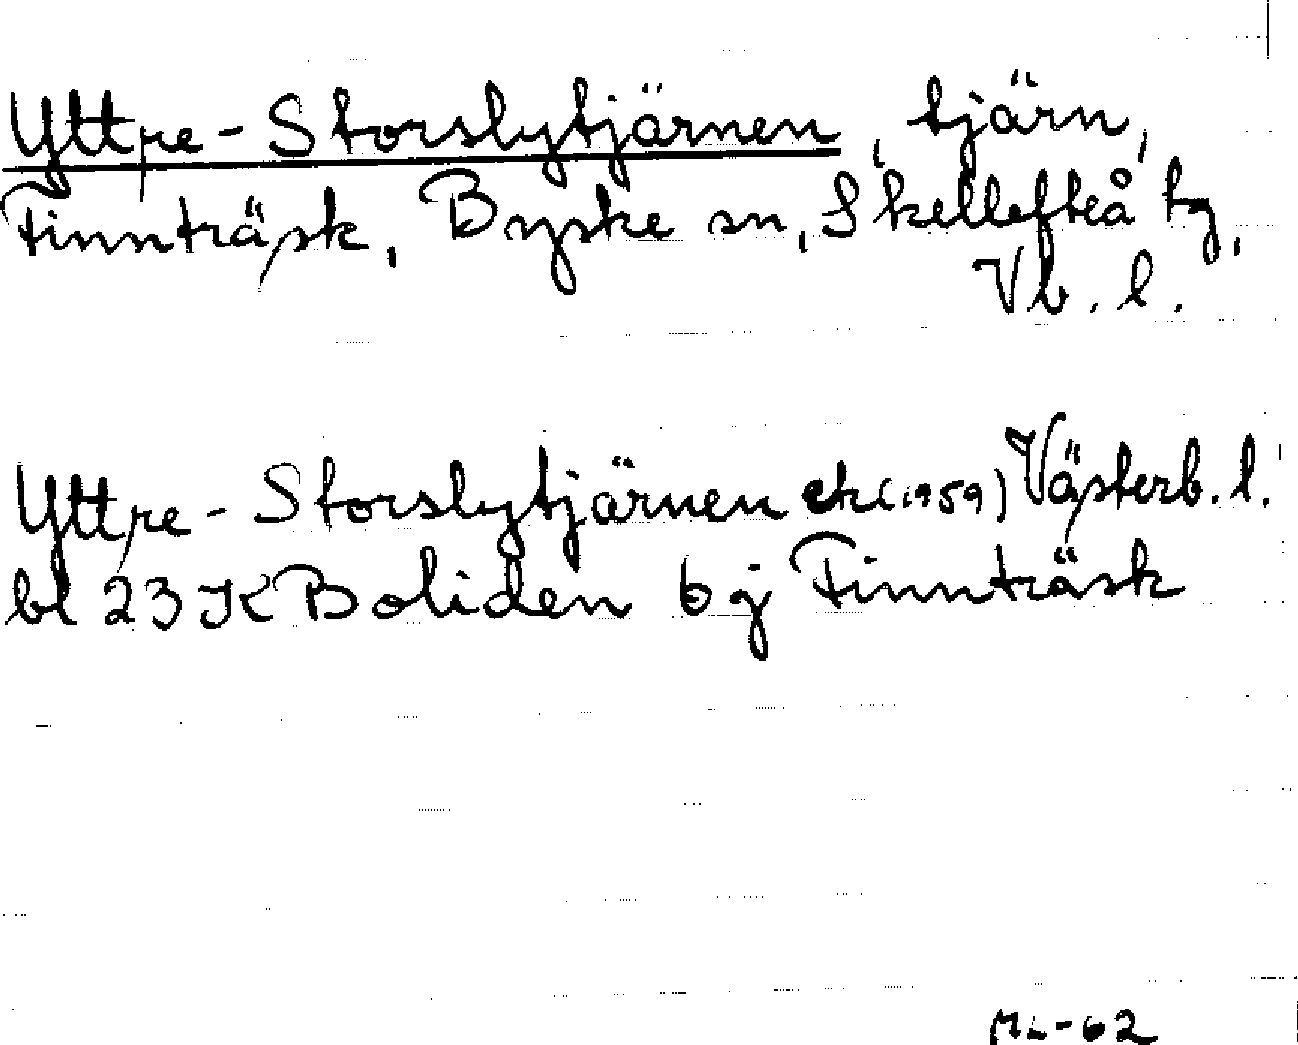 Yttre-Storslytjärnen, tjärn,
Finnträsk, Byske sn, Skellefteå tg,
Vb. l.
Yttre-Storslytjärnen ek (1959) Västerb. l.
bl 23 K Boliden 6 j Finnträsk
ML-62